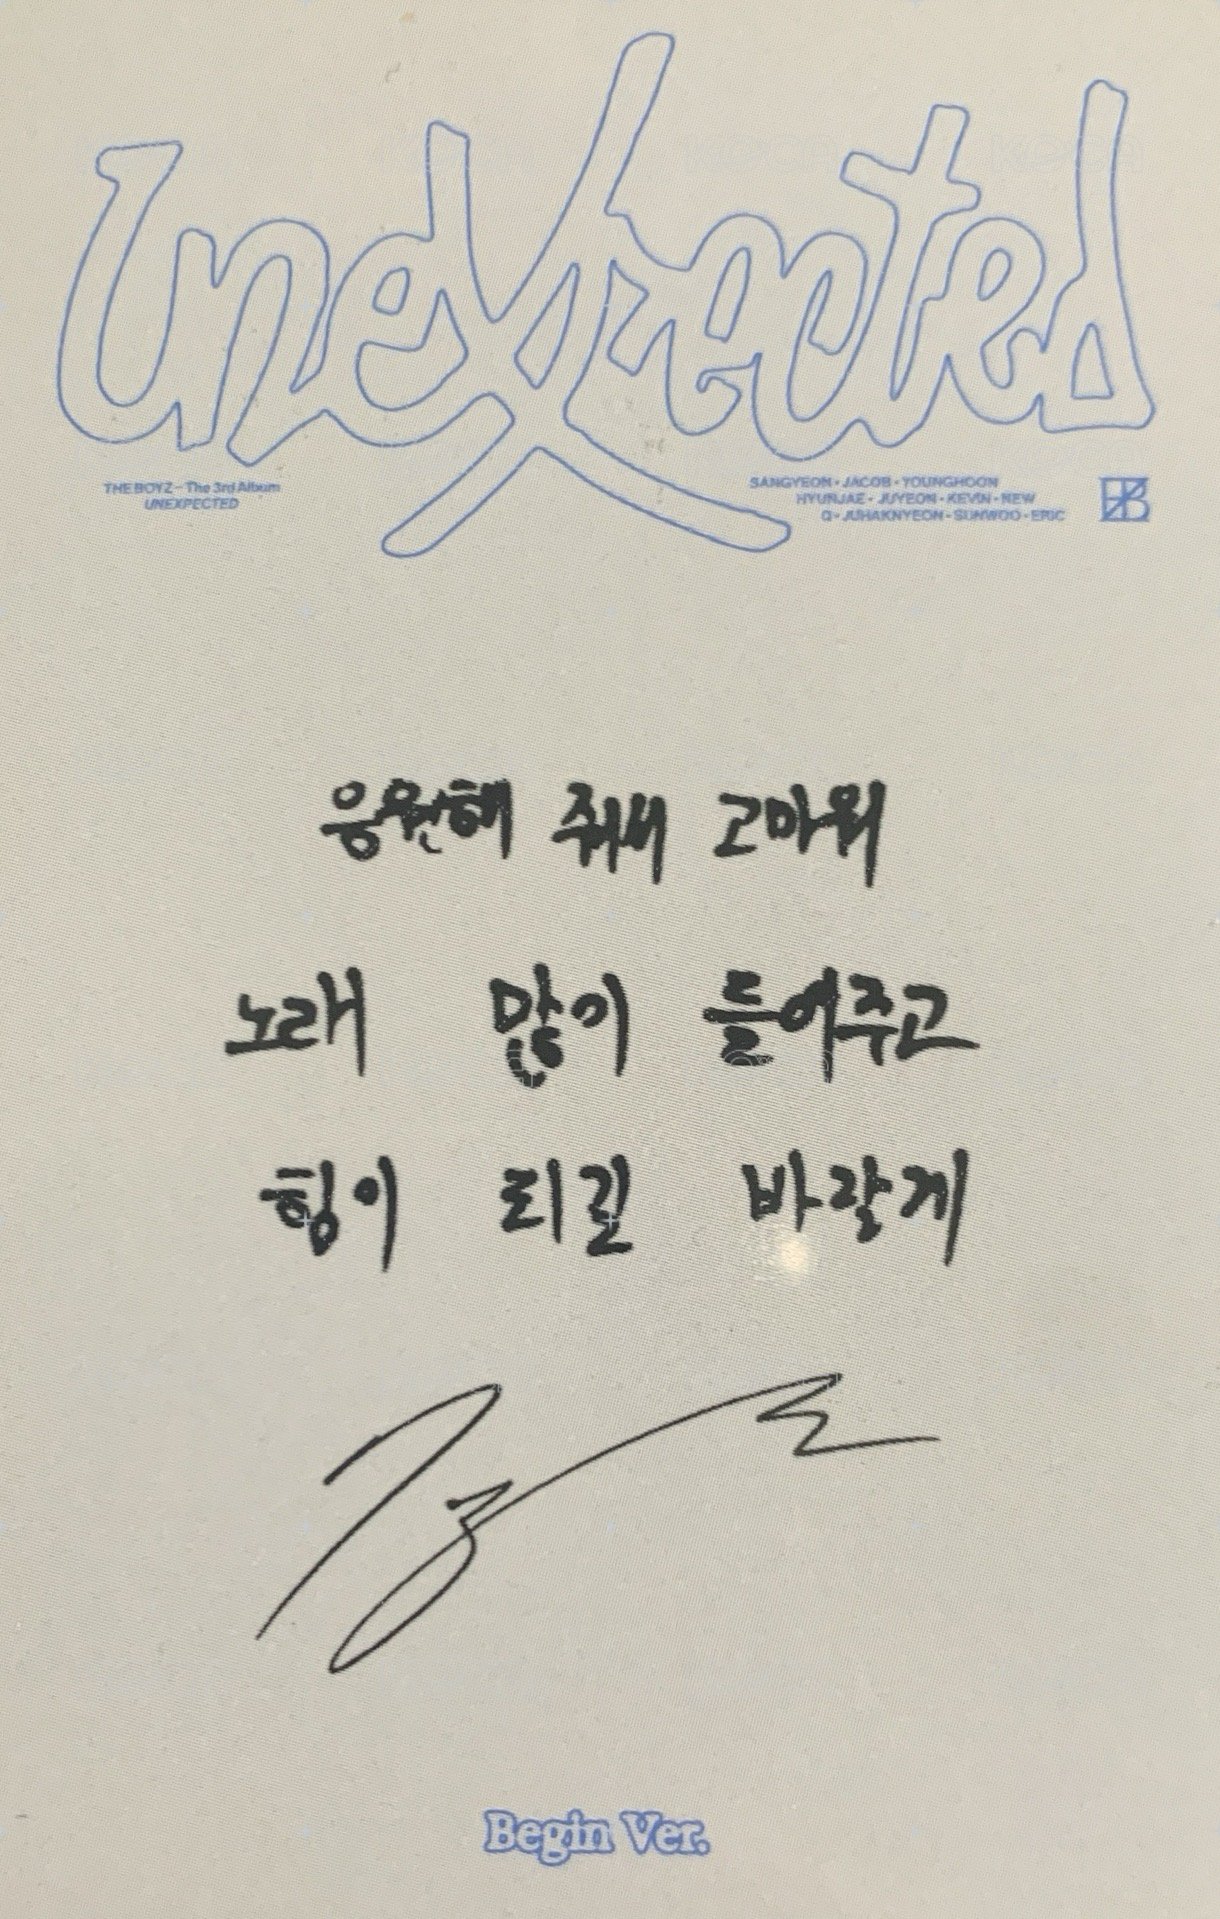 Unexpected
THE BOYZ - The 3rd Album
UNEXPECTED
SANGYEON · JACOB · YOUNGHOON
HYUNJAE · JUYEON · KEVIN · NEW
Q · JUHAKNYEON · SUNWOO · ERIC
응원해 줘서 고마워
노래 많이 들어주고
힘이 되길 바랄게
Begin Ver.